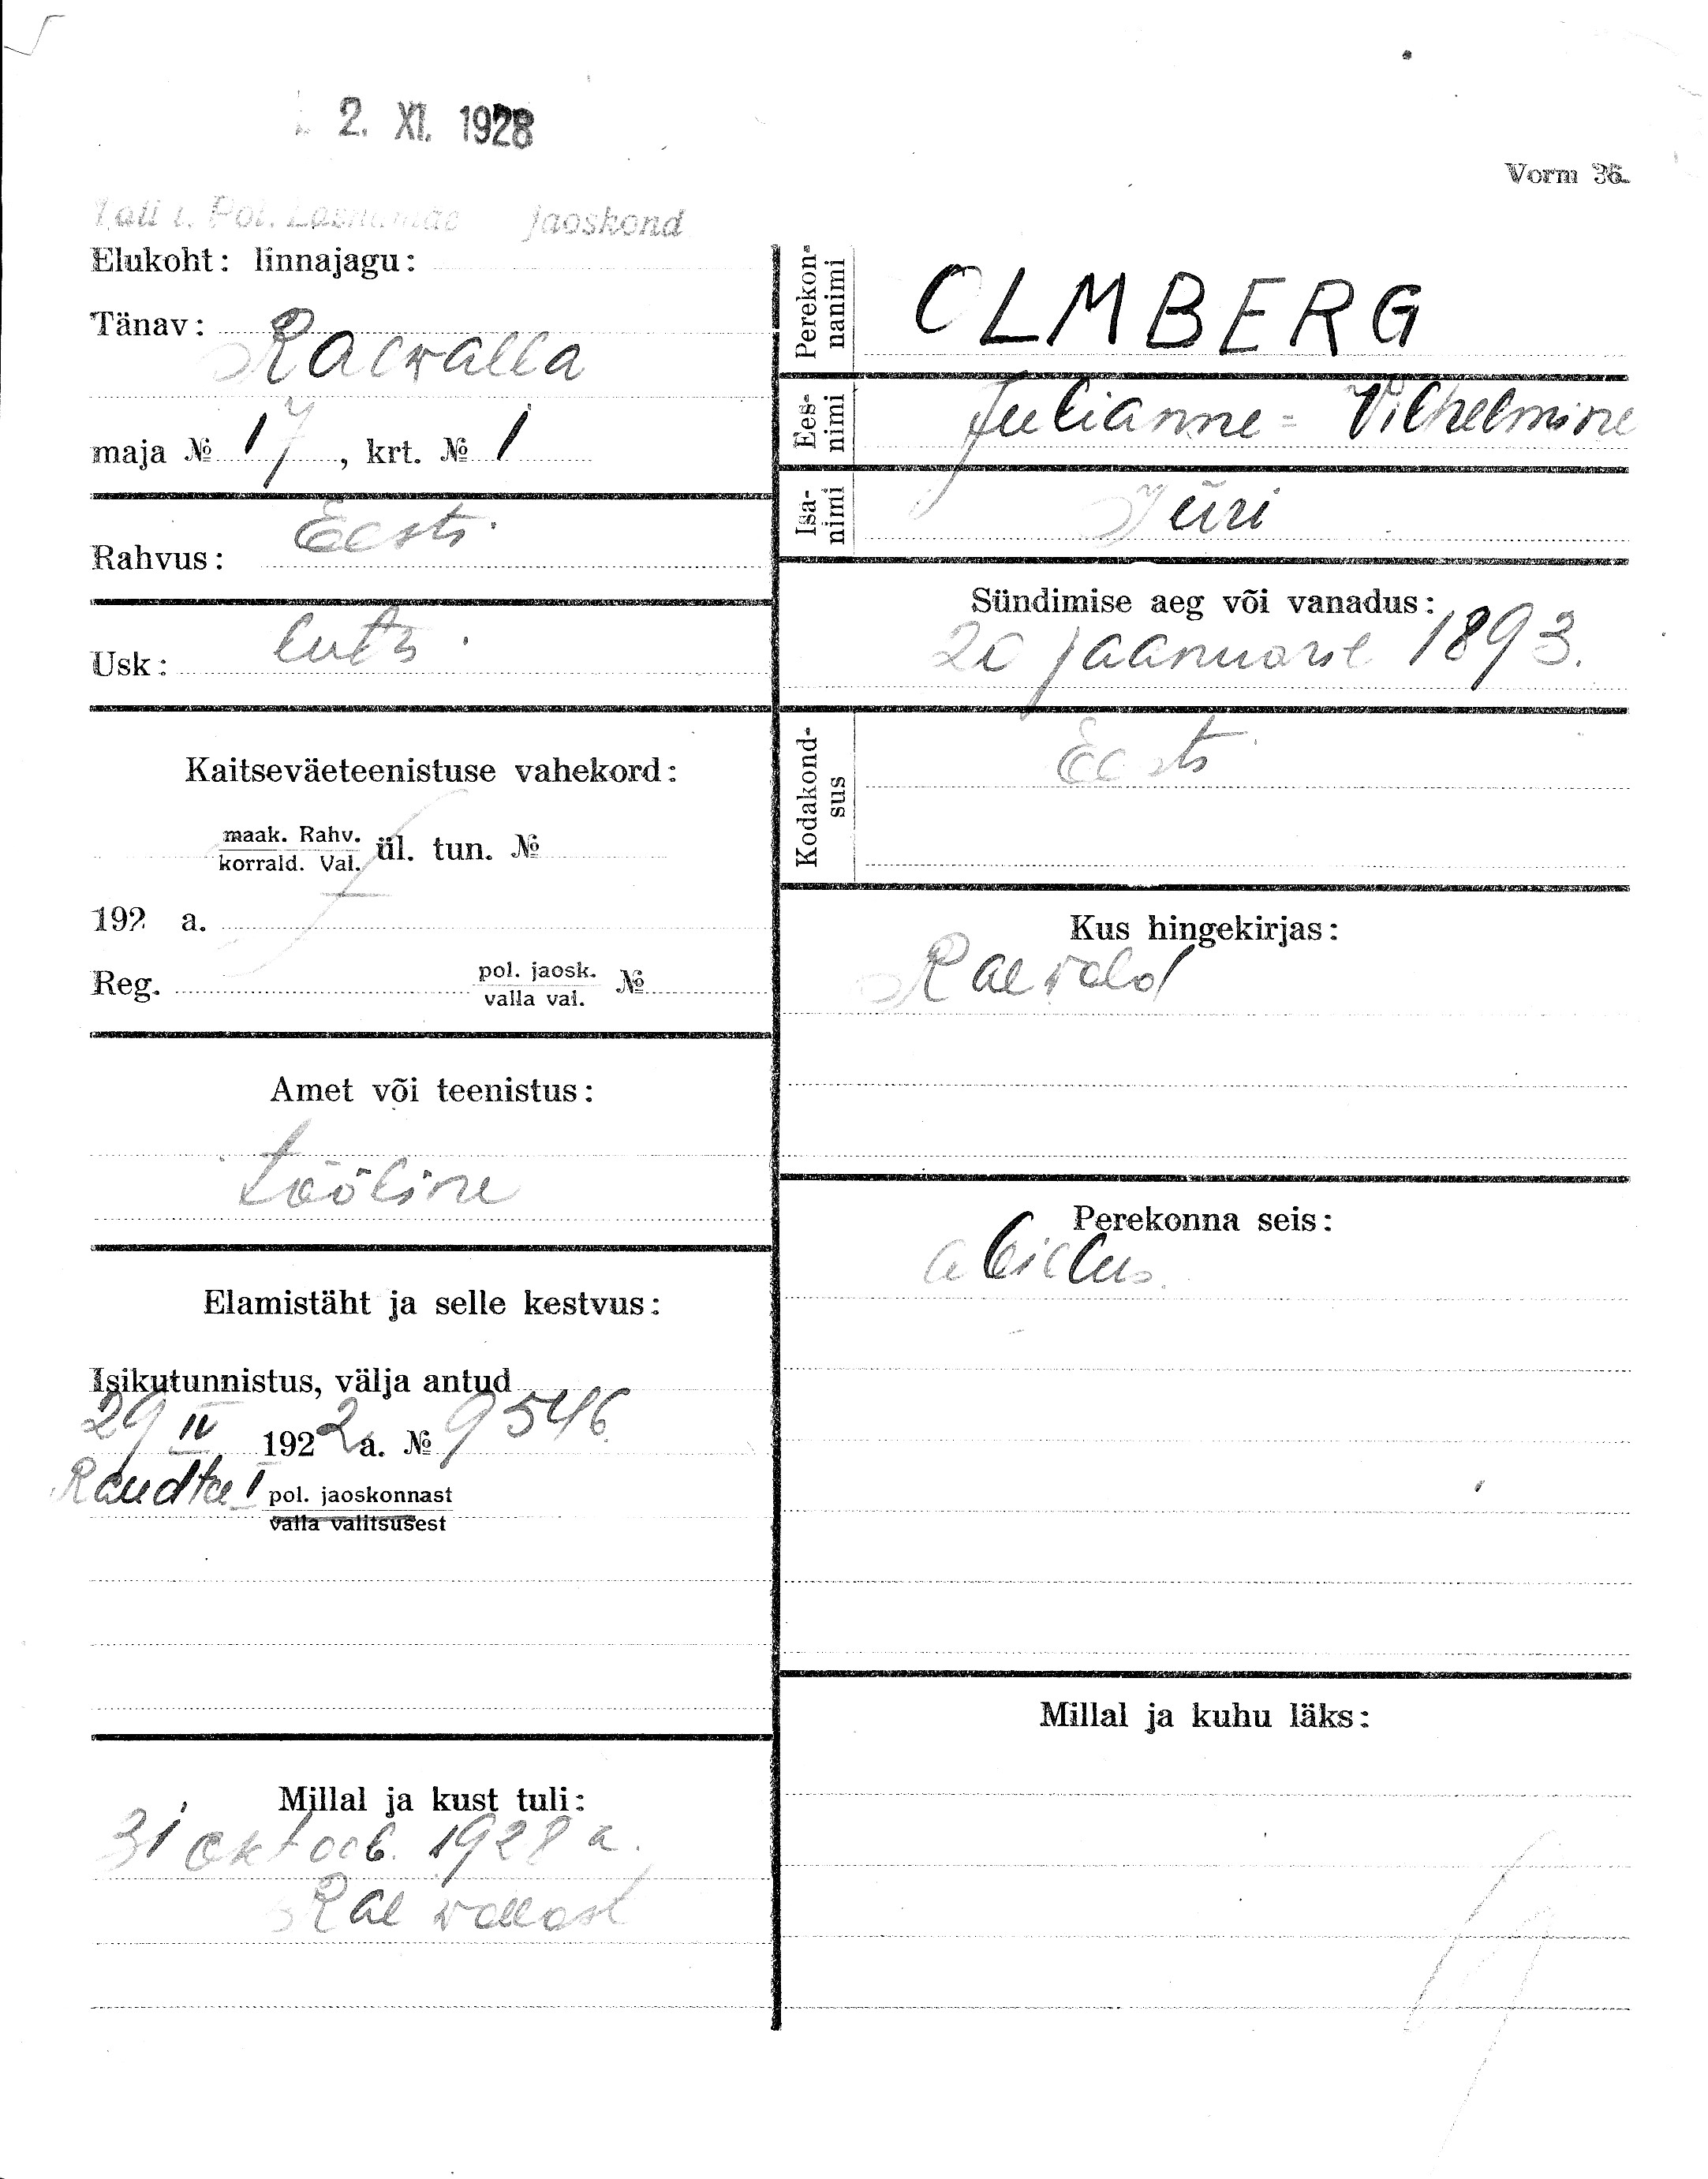 2. XI. 1928
Vorm 36.
jaoskond
Elukoht: linnajagu:
Tänav: Raewalla
maja № 17, krt. № 1
Rahvus: Eesti
Usk: luts.
Kaitseväeteenistuse vahekord:
maak. Rahv.
korrald. Val. ül. tun. №
192 a.
Reg. pol. jaosk. №
valla val.
Amet või teenistus:
Tööline
Elamistäht ja selle kestvus:
Isikutunnistus, välja antud
29 IV 1922 a. № 9546
Raudtee I pol. jaoskonnast
valla valitsusest
Millal ja kust tuli:
31 oktoob. 1928 a.
Rae wallast
Perekonnanimi OLMBERG
Eesnimi Julianne=Vilhelmine
Isanimi Jüri
Sündimise aeg või vanadus:
20 jaanuaril 1893.
Kodakondsus Eesti
Kus hingekirjas:
Rae vald
Perekonna seis:
abielus.
Millal ja kuhu läks: